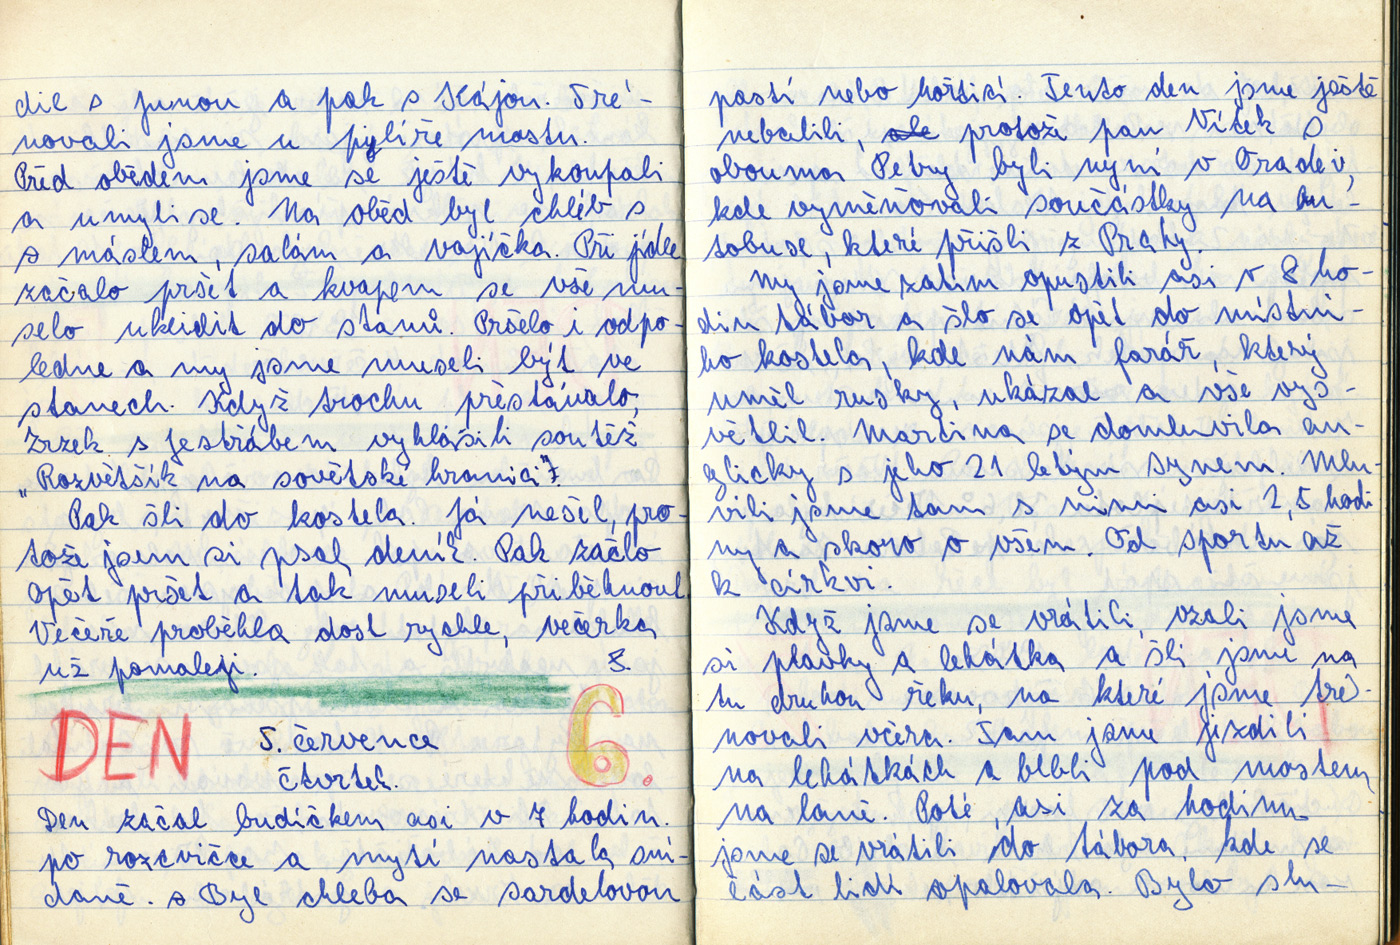 dil s Junou a pak s Kájou. Tré-
novali jsme u pylíře mostu.
Před obědem jsme se ještě vykoupali
a umyli se. Na oběd byl chléb s
s máslem, salám a vajíčka. Při jídle
začalo pršet a kvapem se vše mu-
selo uklidit do stanů. Pršelo i odpo-
ledne a my jsme museli být ve
stanech. Když trochu přestávalo,
Zrzek s Jestřábem vyhlásili soutěž
„Rozvětšík na sovětské hranici".
Pak šli do kostela. Já nešel, pro-
tože jsem si psal deník. Pak začlo
opět pršet a tak museli přiběhnout.
Večeře proběhla dost rychle, večerka
už pomaleji. 8.
DEN 5. července 6.
čtvrtek.
Den začal budíčkem asi v 7 hodin.
po rozcvičce a mytí nastala sní-
daně. s Byl chleba se sardelovou
pastí nebo hořčicí Tento den jsme ještě
nebalili, ale protože pan Vítek s
obouma Petry byli nyní v Oradei,
kde vyměňovali součástky na au-
tobuse, které přišli z Prahy.
My jsme zatím opustili asi v 8 ho-
din tábor a šlo se opět do místní-
ho kostela, kde nám farář, který
uměl rusky, ukázal a vše vys-
větlil. Martina se domluvila an-
glicky s jeho 21 letým synem. Mlu-
vili jsme tam s nimi asi 2,5 hodi
ny a skoro o všem. Od sportu až
k církvi.
Když jsme se vrátili, vzali jsme
si plavky a lehátka a šli jsme na
tu druhou řeku, na které jsme tré-
novali včera. Tam jsme jezdili
na lehátkách a blbli pod mostem
na laně. Poté, asi za hodinu
jsme se vrátili do tábora, kde se
část lidí opalovala. Bylo slu-